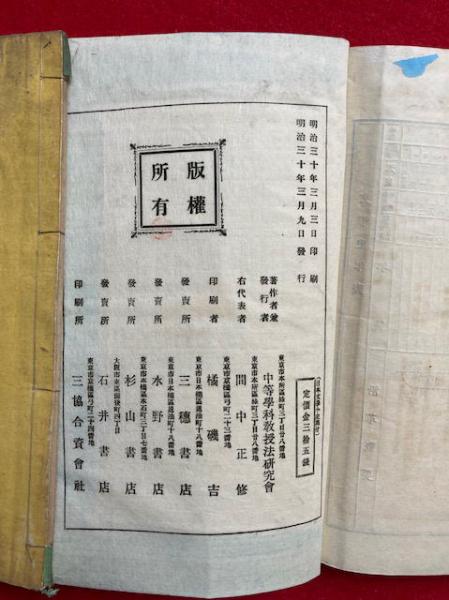 明治三十年三月三日印刷
明治三十年三月九日發行
版權
所有
定價金三拾五錢
著作者兼
發行者
東京市本所區綠町三丁目廿八番地
中等學科教授法研究會
右代表者
東京市本所區綠町三丁目廿八番地
間中正修
印刷者
東京市京橋區弓町二十三番地
橘磯吉
發賣所
東京市日本橋區通油町十八番地
三穗書店
發賣所
東京市日本橋區通油町十八番地
水野書店
發賣所
東京市本橋區本石町三丁目七番地
杉山書店
發賣所
大阪市東區備後町四丁目
石井書店
印刷所
東京市京橋區弓町二十四番地
三協合資會社